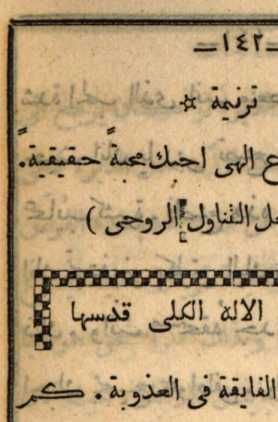 ١٤٢
ترنيمة
ع الهى احبك محبةً حقيقيةً.
التناول الروحى )
الاله الكلى قدسها
الفايقة فى العذوبة . كم